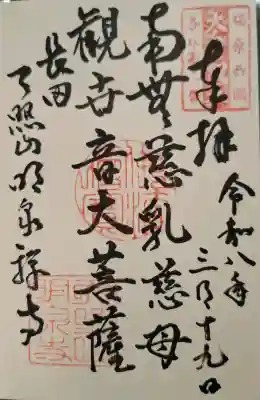 奉拝
令和八年
三月十九日
南無慈乳慈母
観世音大菩薩
長田
明泉禅寺